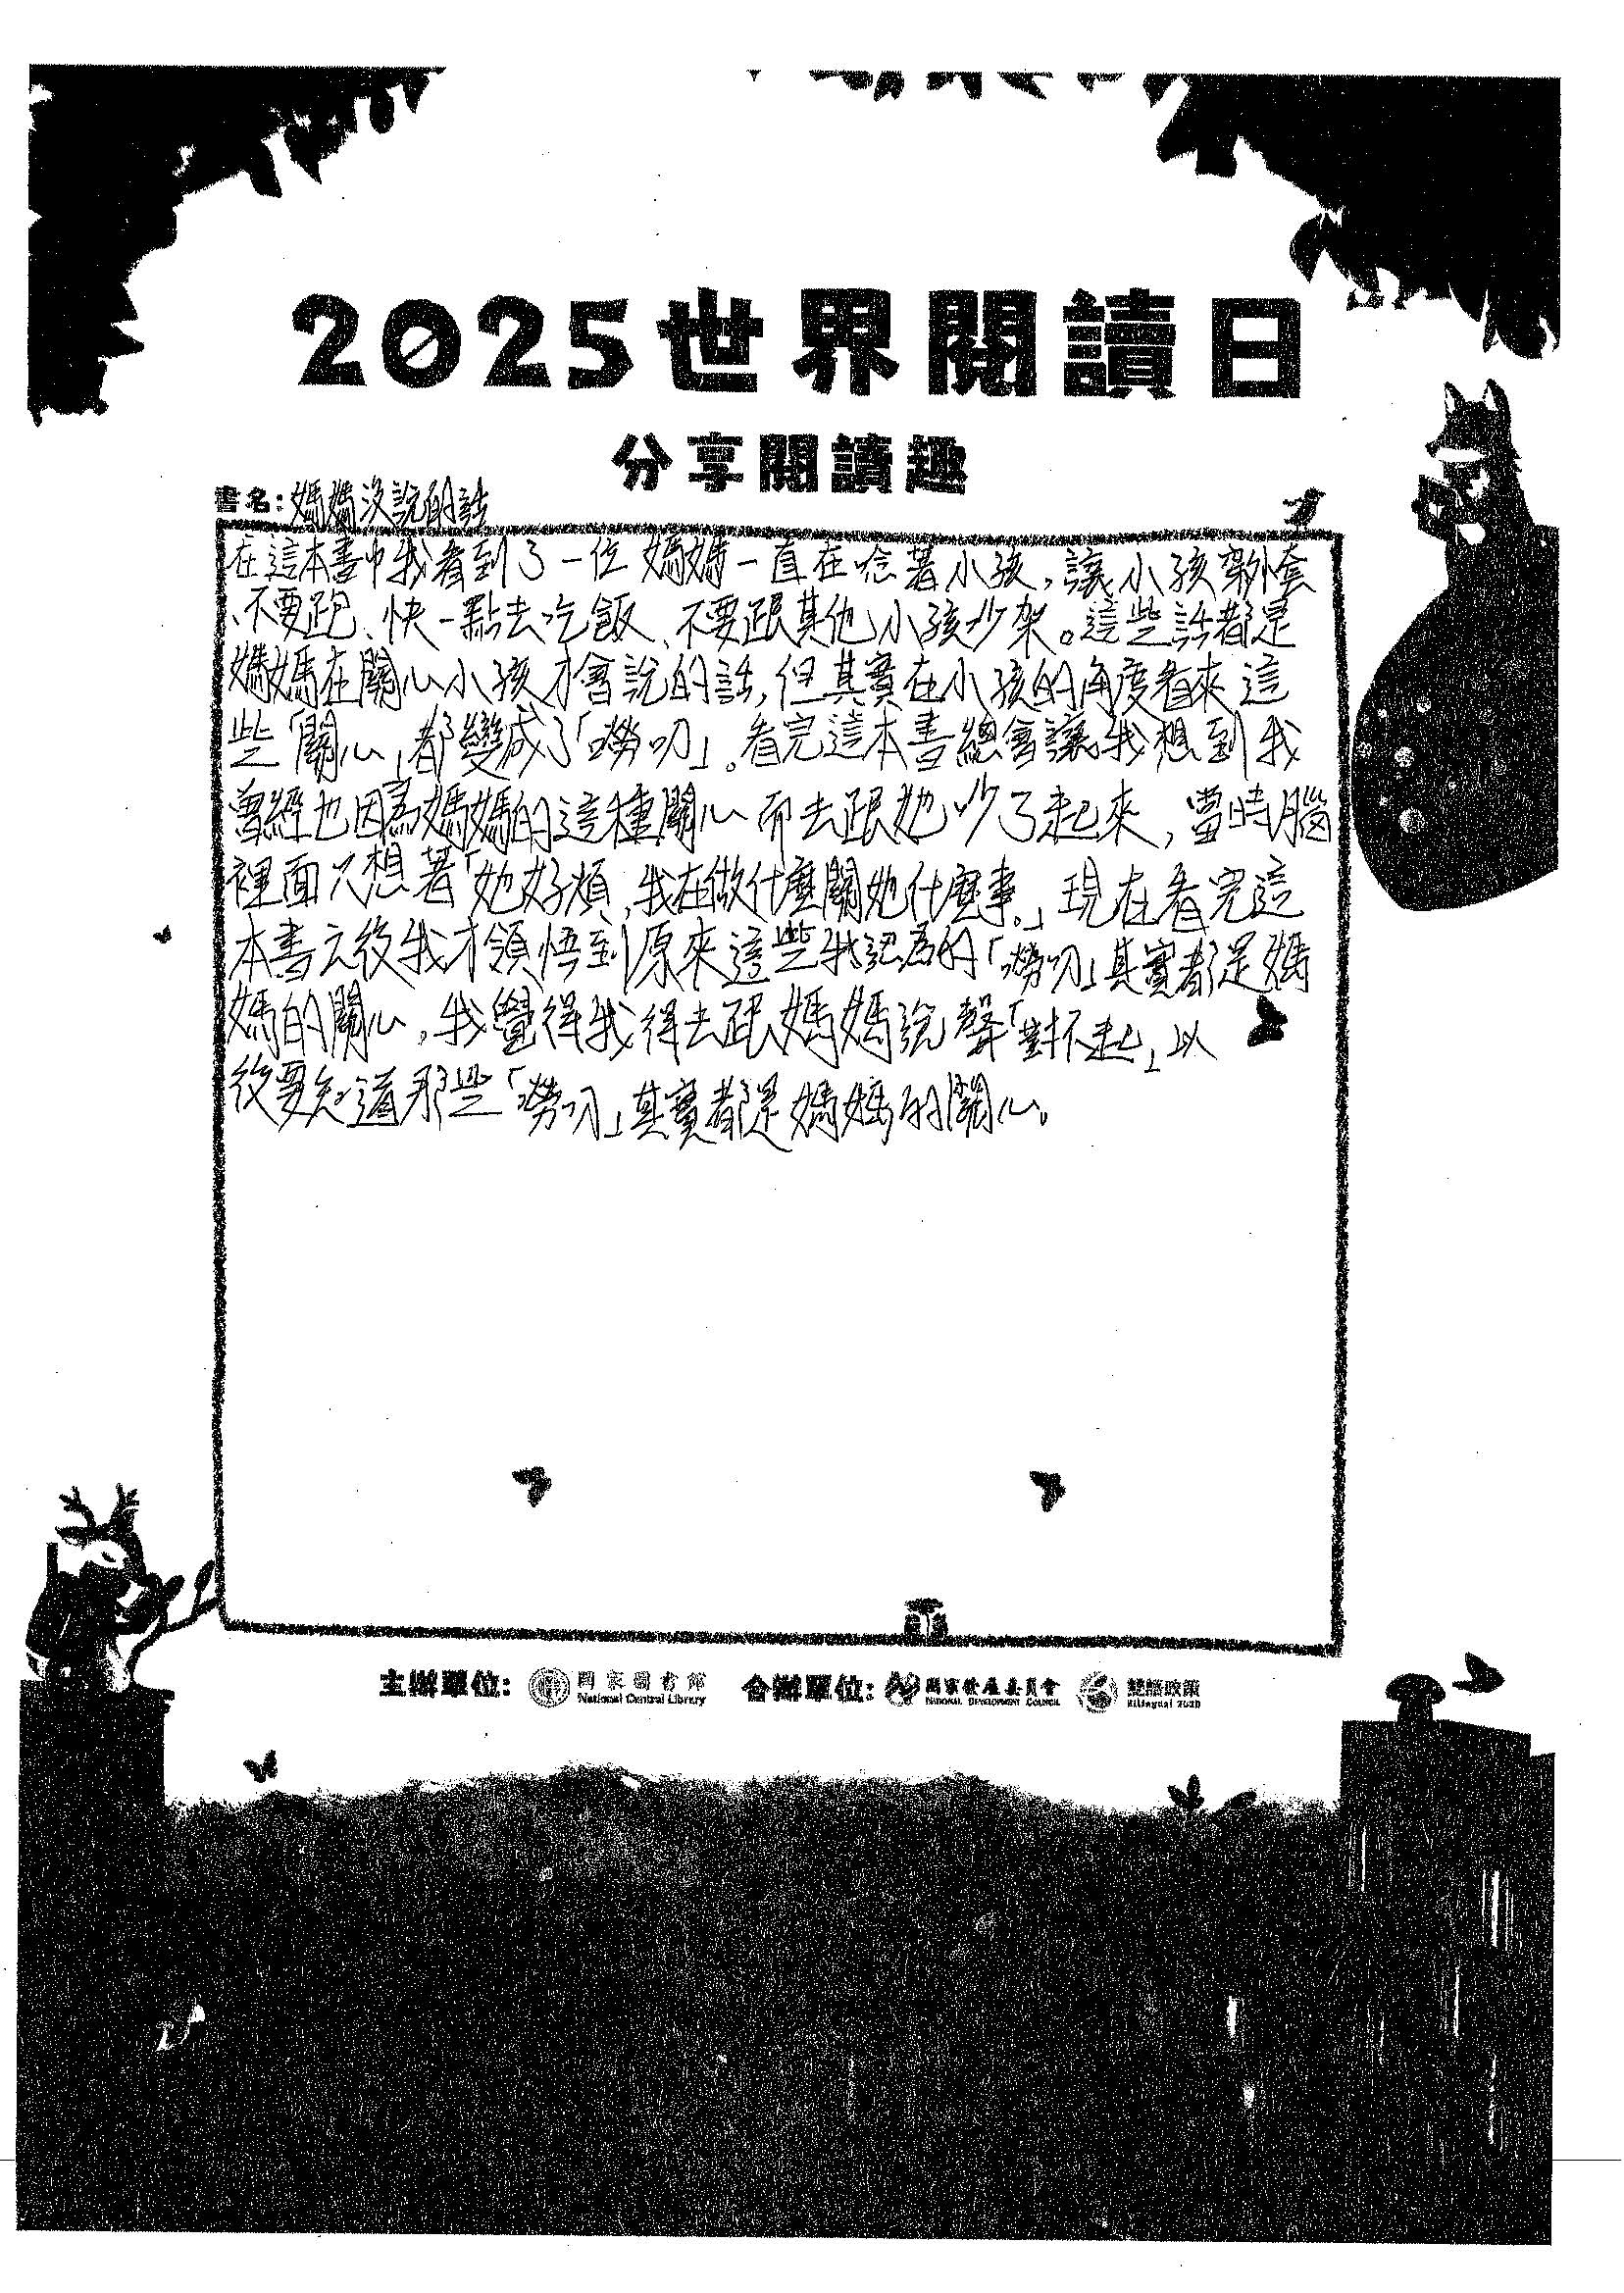 2025世界閱讀日
分享閱讀趣
書名:媽媽沒說的話
在這本書中我看到了一位媽媽一直在唸著小孩,讓小孩穿外套
、不要跑、快一點去吃飯、不要跟其他小孩吵架。這些話都是
媽媽在關心小孩才會說的話,但其實在小孩的角度看來這
些「關心」都變成了「嘮叨」。看完這本書總會讓我想到我
曾經也因為媽媽的這種關心而去跟她吵了起來,當時腦
裡面只想著「她好煩,我在做什麼關她什麼事。」現在看完這
本書之後我才領悟到原來這些我認為的「嘮叨」其實都是媽
媽的關心,我覺得我得去跟媽媽說聲「對不起」以
後要知道那些「嘮叨」其實都是媽媽的關心。
主辦單位: 國家圖書館 National Central Library 合辦單位: 國家發展委員會 NATIONAL DEVELOPMENT COUNCIL 雙語政策 Bilingual 2030